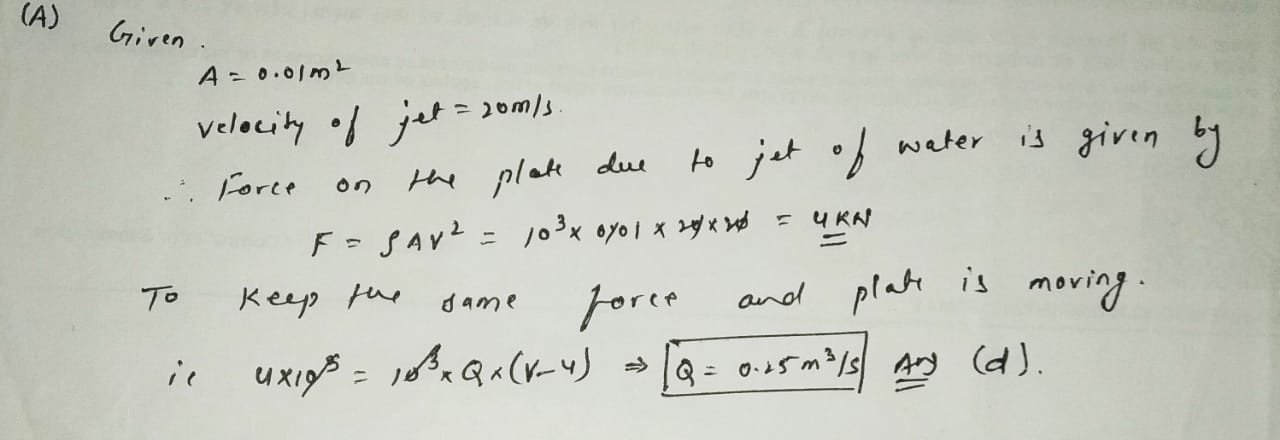 (A) Given.
A = 0.01m²
velocity of jet = 20m/s.
∴ Force on the plate due to jet of water is given by
F = ρAV² = 10³ x 0.01 x 20 x 20 = 4KN
To keep the same force and plate is moving.
ie 4x10³ = 10³ x Q x (V-4) ⇒ Q = 0.25 m³/s Ans (d).